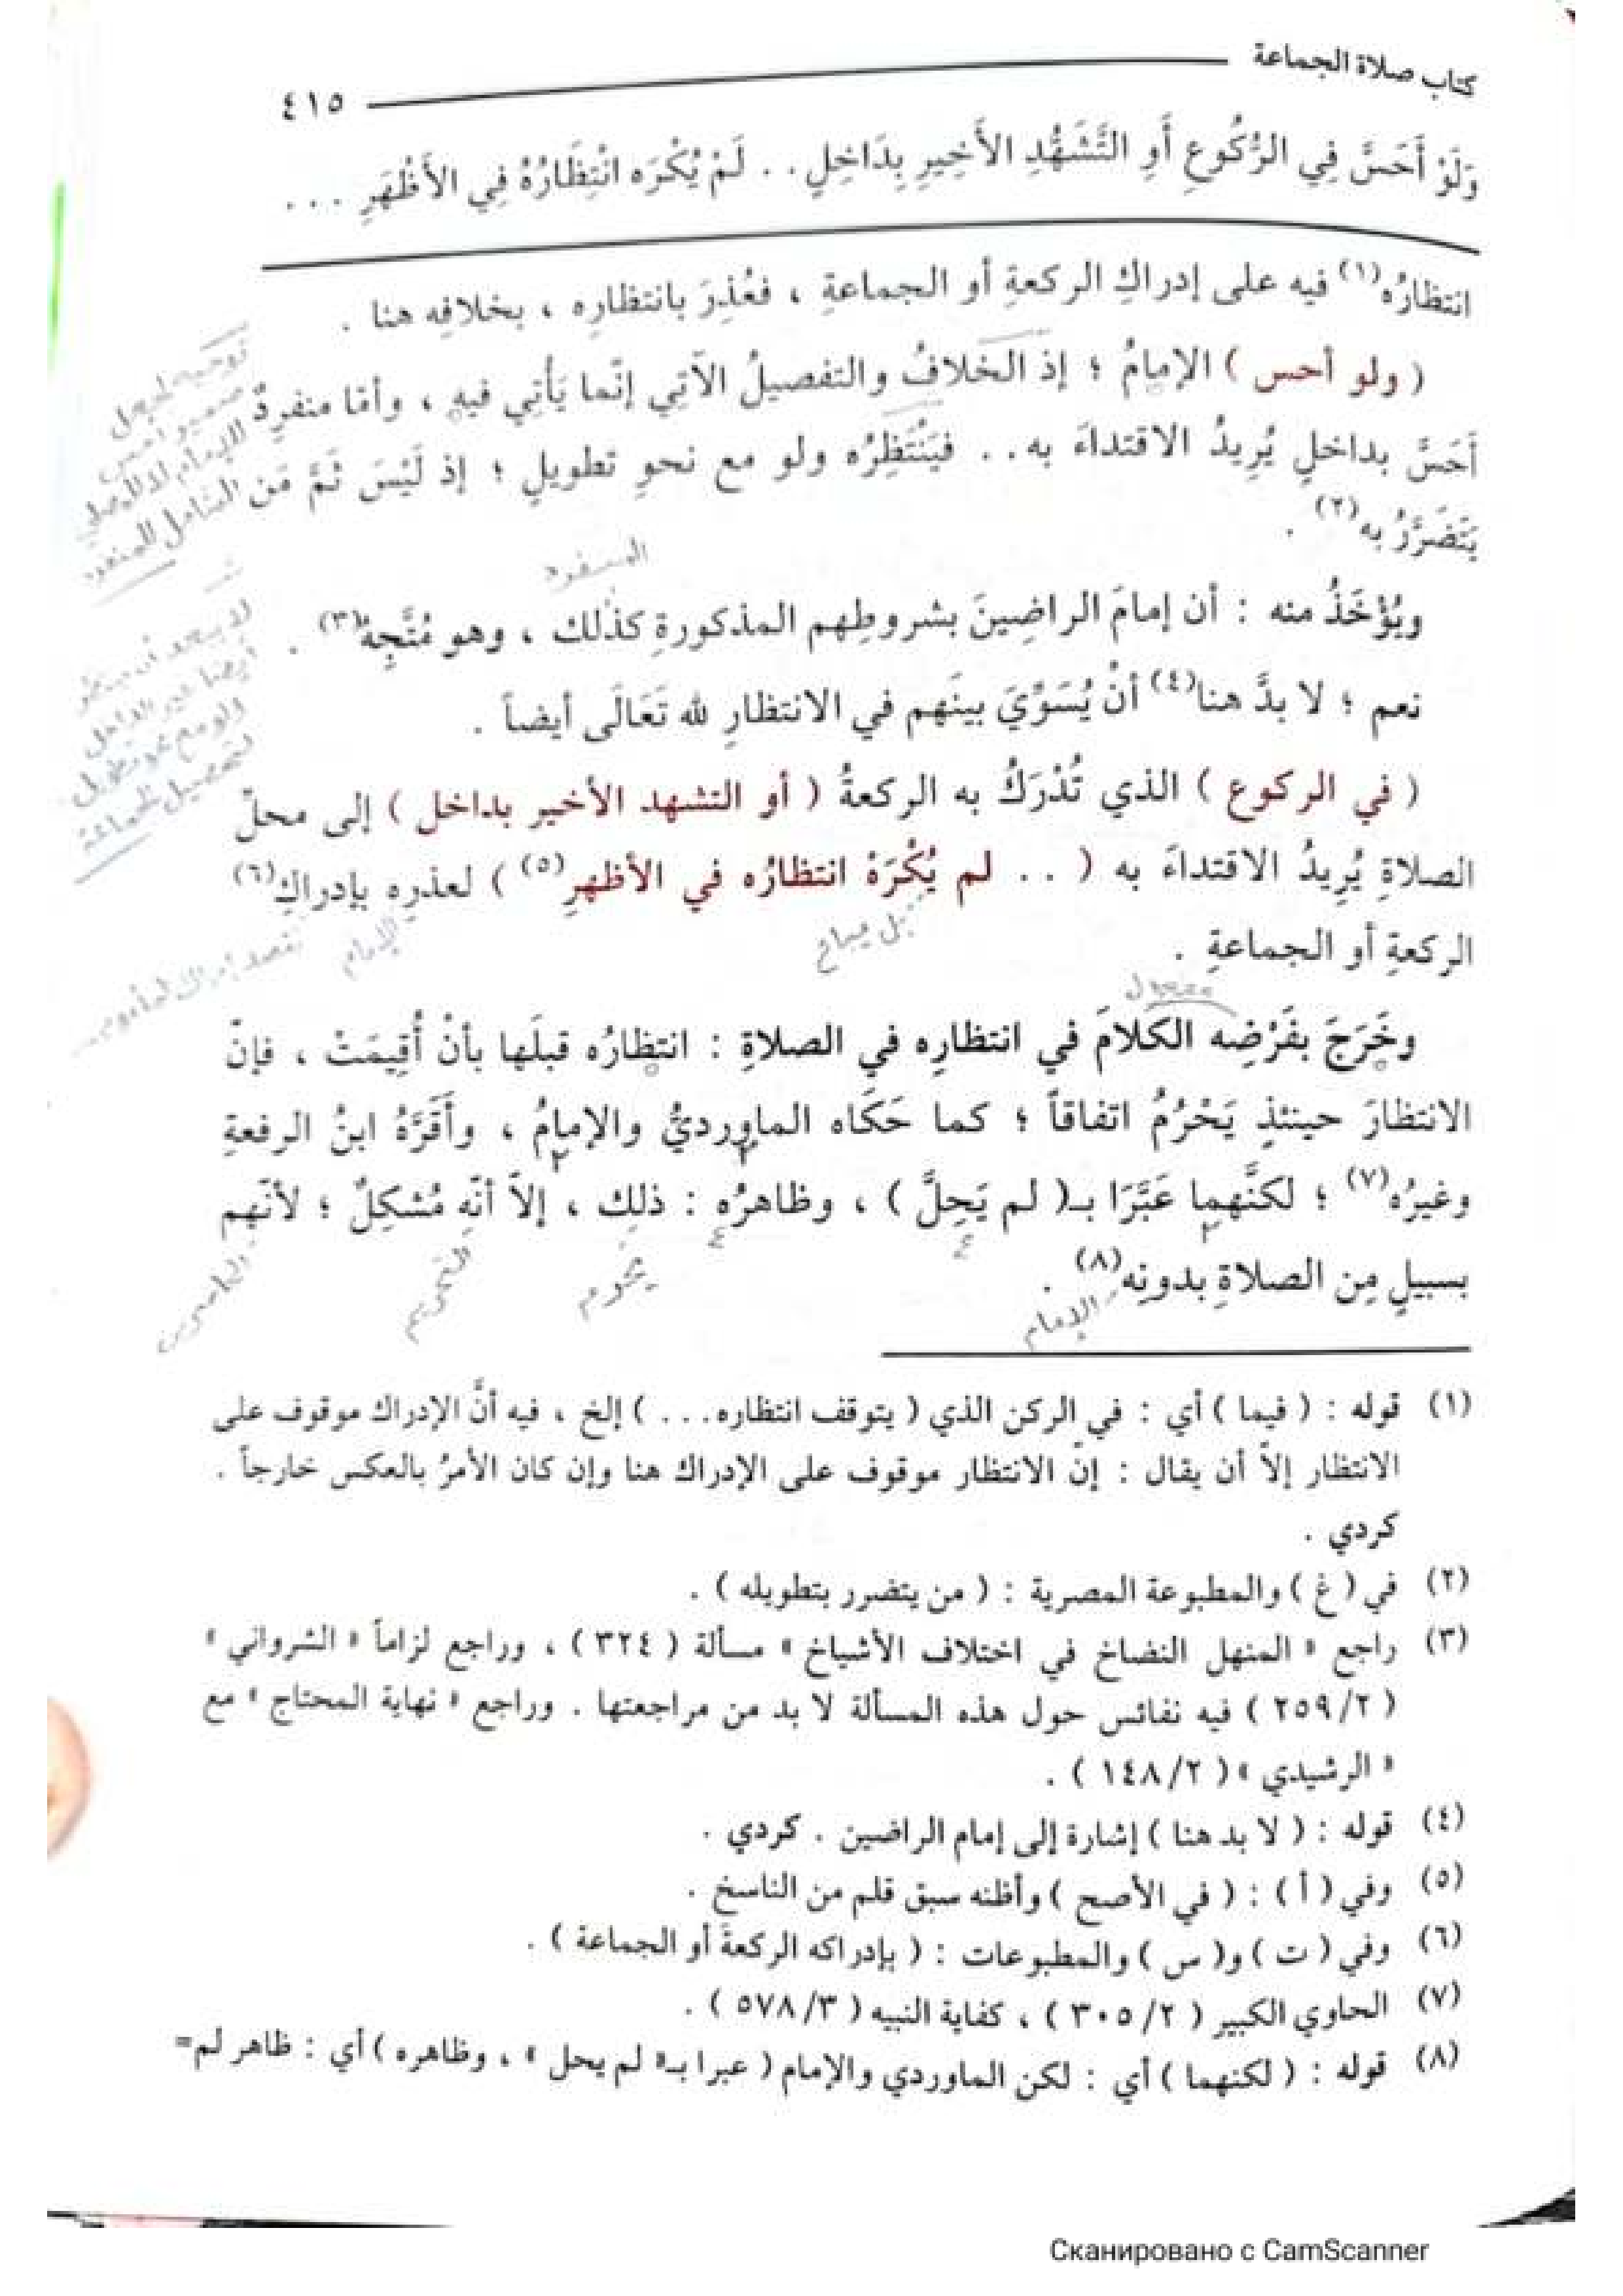 كتاب صلاة الجماعة ٤١٥
وَلَوْ أَحَسَّ فِي الرُّكُوعِ أَوِ التَّشَهُّدِ الأَخِيرِ بِدَاخِلٍ . . لَمْ يُكْرَه انْتِظَارُهُ فِي الأَظْهَرِ . . .
انتظارُه(١) فيه على إدراكِ الركعةِ أو الجماعةِ ، فعُذِرَ بانتظارِه ، بخلافِه هنا .
( ولو أحس ) الإمامُ ؛ إذ الخلافُ والتفصيلُ الآتي إنّما يَأْتِي فيه ، وأمّا منفردٌ
أَحَسَّ بداخلٍ يُرِيدُ الاقتداءَ به . . فيَنْتَظِرُه ولو مع نحوِ تطويلٍ ؛ إذ لَيْسَ ثَمَّ مَن
يَتَضَرَّرُ به(٢) .
المنفرد
ويُؤْخَذُ منه : أن إمامَ الراضِينَ بشروطِهم المذكورةِ كذلك ، وهو مُتَّجِهٌ(٣) .
نعم ؛ لا بدَّ هنا(٤) أنْ يُسَوِّيَ بينَهم في الانتظارِ لله تَعَالَى أيضاً .
( في الركوع ) الذي تُدْرَكُ به الركعةُ ( أو التشهد الأخير بداخل ) إلى محلّ
الصلاةِ يُرِيدُ الاقتداءَ به ( . . لم يُكْرَهْ انتظارُه في الأظهرِ(٥) ) لعذرِه بإدراكِ(٦)
بل يباح الإمام
الركعةِ أو الجماعةِ .
وخَرَجَ بفَرْضِه الكلامَ في انتظارِه في الصلاةِ : انتظارُه قبلَها بأنْ أُقِيمَتْ ، فإنّ
الانتظارَ حينئذٍ يَحْرُمُ اتفاقاً ؛ كما حَكَاه الماورديُّ والإمامُ ، وأَقَرَّهُ ابنُ الرفعةِ
وغيرُه(٧) ؛ لكنَّهما عَبَّرَا بـ( لم يَحِلَّ ) ، وظاهرُه : ذلك ، إلاّ أنّه مُشكِلٌ ؛ لأنّهم
بسبيلٍ مِن الصلاةِ بدونِه(٨) .
الإمام يحرم التحريم
(١) قوله : ( فيما ) أي : في الركن الذي ( يتوقف انتظاره . . . ) إلخ ، فيه أنَّ الإدراك موقوف على
الانتظار إلاّ أن يقال : إنّ الانتظار موقوف على الإدراك هنا وإن كان الأمرُ بالعكس خارجاً .
كردي .
(٢) في ( غ ) والمطبوعة المصرية : ( من يتضرر بتطويله ) .
(٣) راجع « المنهل النضاخ في اختلاف الأشياخ » مسألة ( ٣٢٤ ) ، وراجع لزاماً « الشرواني »
( ٢/ ٢٥٩ ) فيه نفائس حول هذه المسألة لا بد من مراجعتها . وراجع « نهاية المحتاج » مع
« الرشيدي » ( ٢/ ١٤٨ ) .
(٤) قوله : ( لا بد هنا ) إشارة إلى إمام الراضين . كردي .
(٥) وفي ( أ ) : ( في الأصح ) وأظنه سبق قلم من الناسخ .
(٦) وفي ( ت ) و( س ) والمطبوعات : ( بإدراكه الركعةَ أو الجماعة ) .
(٧) الحاوي الكبير ( ٢/ ٣٠٥ ) ، كفاية النبيه ( ٣/ ٥٧٨ ) .
(٨) قوله : ( لكنهما ) أي : لكن الماوردي والإمام ( عبرا بـ« لم يحل » ، وظاهره ) أي : ظاهر لم=
Сканировано с CamScanner